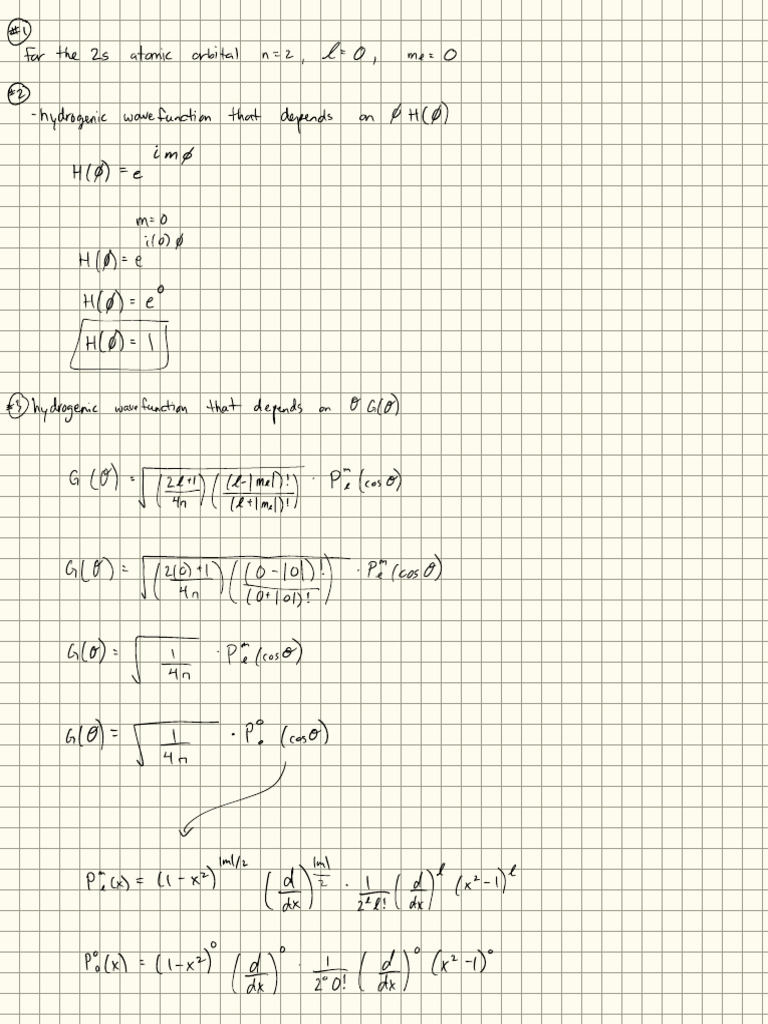 #1
For the 2s atomic orbital n=2, l=0, me=0
#2
-hydrogenic wavefunction that depends on ϕ H(ϕ)
H(ϕ) = e^{imϕ}
m=0
H(ϕ) = e^{i(0)ϕ}
H(ϕ) = e^0
H(ϕ) = 1
#3 hydrogenic wavefunction that depends on θ G(θ)
G(θ) = √((2l+1)/4π)((l-|me|)!/(l+|me|)!) · P_l^m(cosθ)
G(θ) = √((2(0)+1)/4π)((0-|0|)!/(0+|0|)!) · P_l^m(cosθ)
G(θ) = √(1/4π) · P_l^m(cosθ)
G(θ) = √(1/4π) · P_0^0 (cosθ)
P_l^m(x) = (1-x²)^{|m|/2} (d/dx)^{|m|/2} · 1/(2^l l!) (d/dx)^l (x²-1)^l
P_0^0(x) = (1-x²)^0 (d/dx)^0 · 1/(2^0 0!) (d/dx)^0 (x²-1)^0